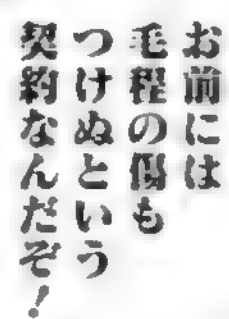 お前には
毛程の傷も
つけぬという
契約なんだぞ！